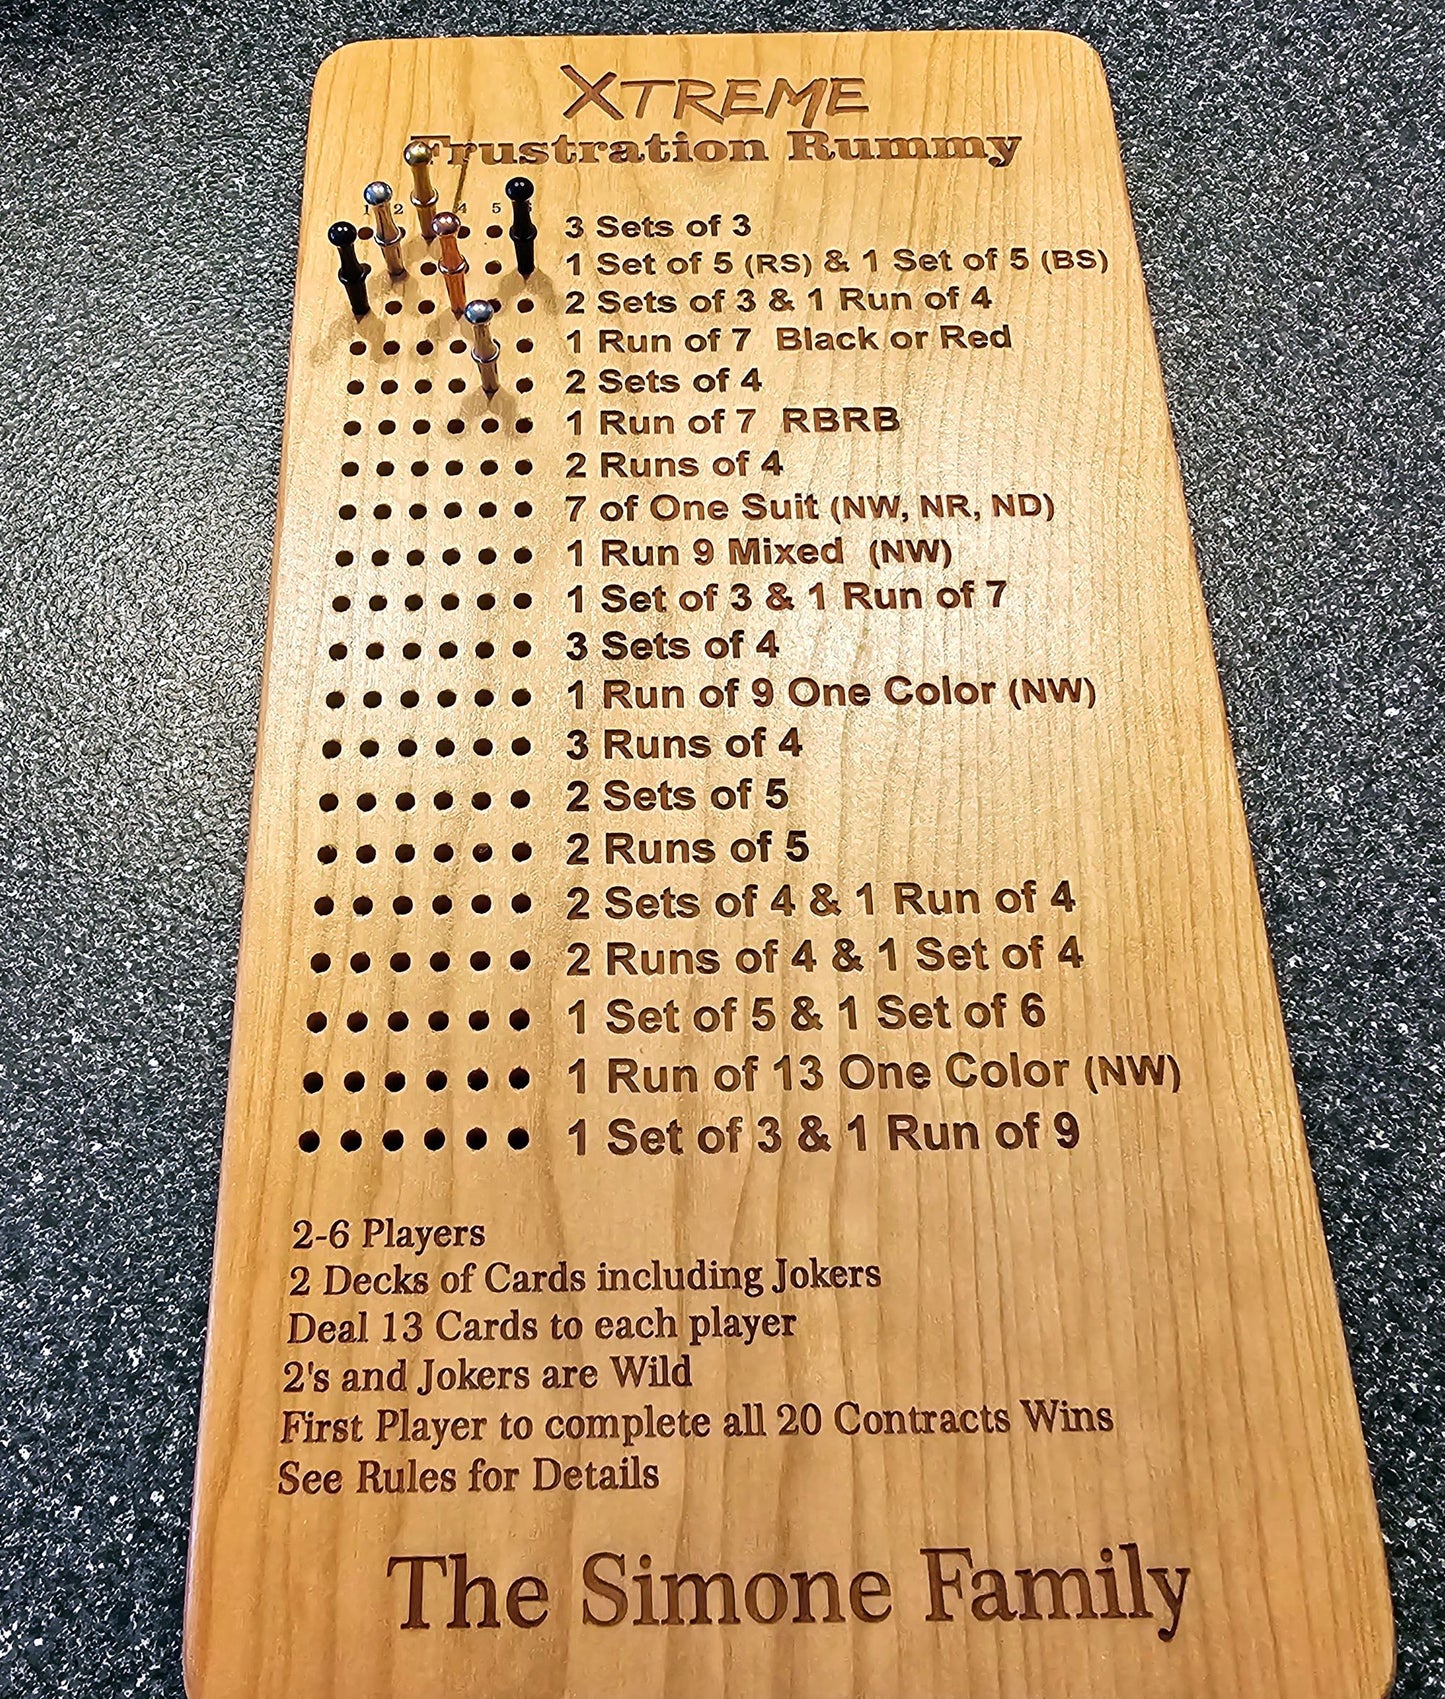 XTREME
Frustration Rummy
1 2 4 5
3 Sets of 3
1 Set of 5 (RS) & 1 Set of 5 (BS)
2 Sets of 3 & 1 Run of 4
1 Run of 7 Black or Red
2 Sets of 4
1 Run of 7 RBRB
2 Runs of 4
7 of One Suit (NW, NR, ND)
1 Run 9 Mixed (NW)
1 Set of 3 & 1 Run of 7
3 Sets of 4
1 Run of 9 One Color (NW)
3 Runs of 4
2 Sets of 5
2 Runs of 5
2 Sets of 4 & 1 Run of 4
2 Runs of 4 & 1 Set of 4
1 Set of 5 & 1 Set of 6
1 Run of 13 One Color (NW)
1 Set of 3 & 1 Run of 9
2-6 Players
2 Decks of Cards including Jokers
Deal 13 Cards to each player
2's and Jokers are Wild
First Player to complete all 20 Contracts Wins
See Rules for Details
The Simone Family